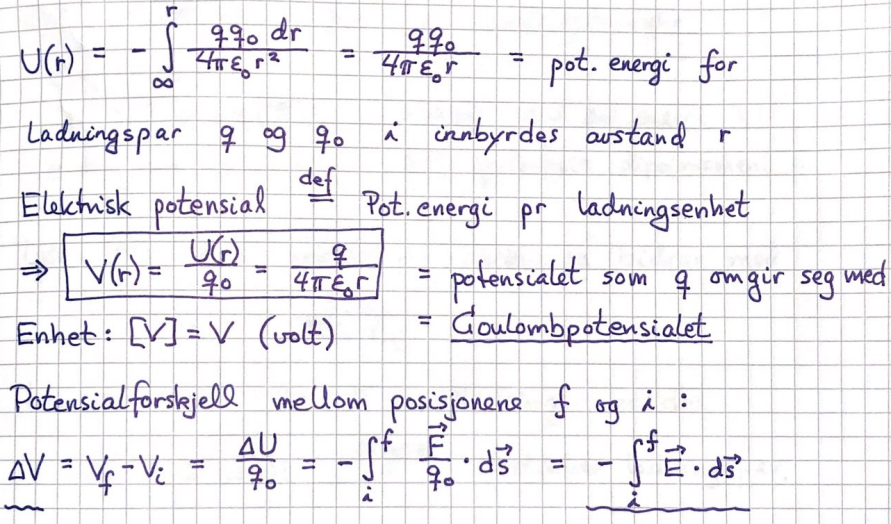 U(r) = - ∫_∞^r qq₀ dr / 4πε₀r² = qq₀ / 4πε₀r = pot. energi for
Ladningspar q og q₀ i innbyrdes avstand r
Elektrisk potensial def= Pot. energi pr ladningsenhet
⇒ V(r) = U(r)/q₀ = q / 4πε₀r = potensialet som q omgir seg med
Enhet: [V] = V (volt) = Coulombpotensialet
Potensialforskjell mellom posisjonene f og i :
ΔV = V_f - V_i = ΔU/q₀ = - ∫_i^f F⃗/q₀ · ds⃗ = - ∫_i^f E⃗ · ds⃗